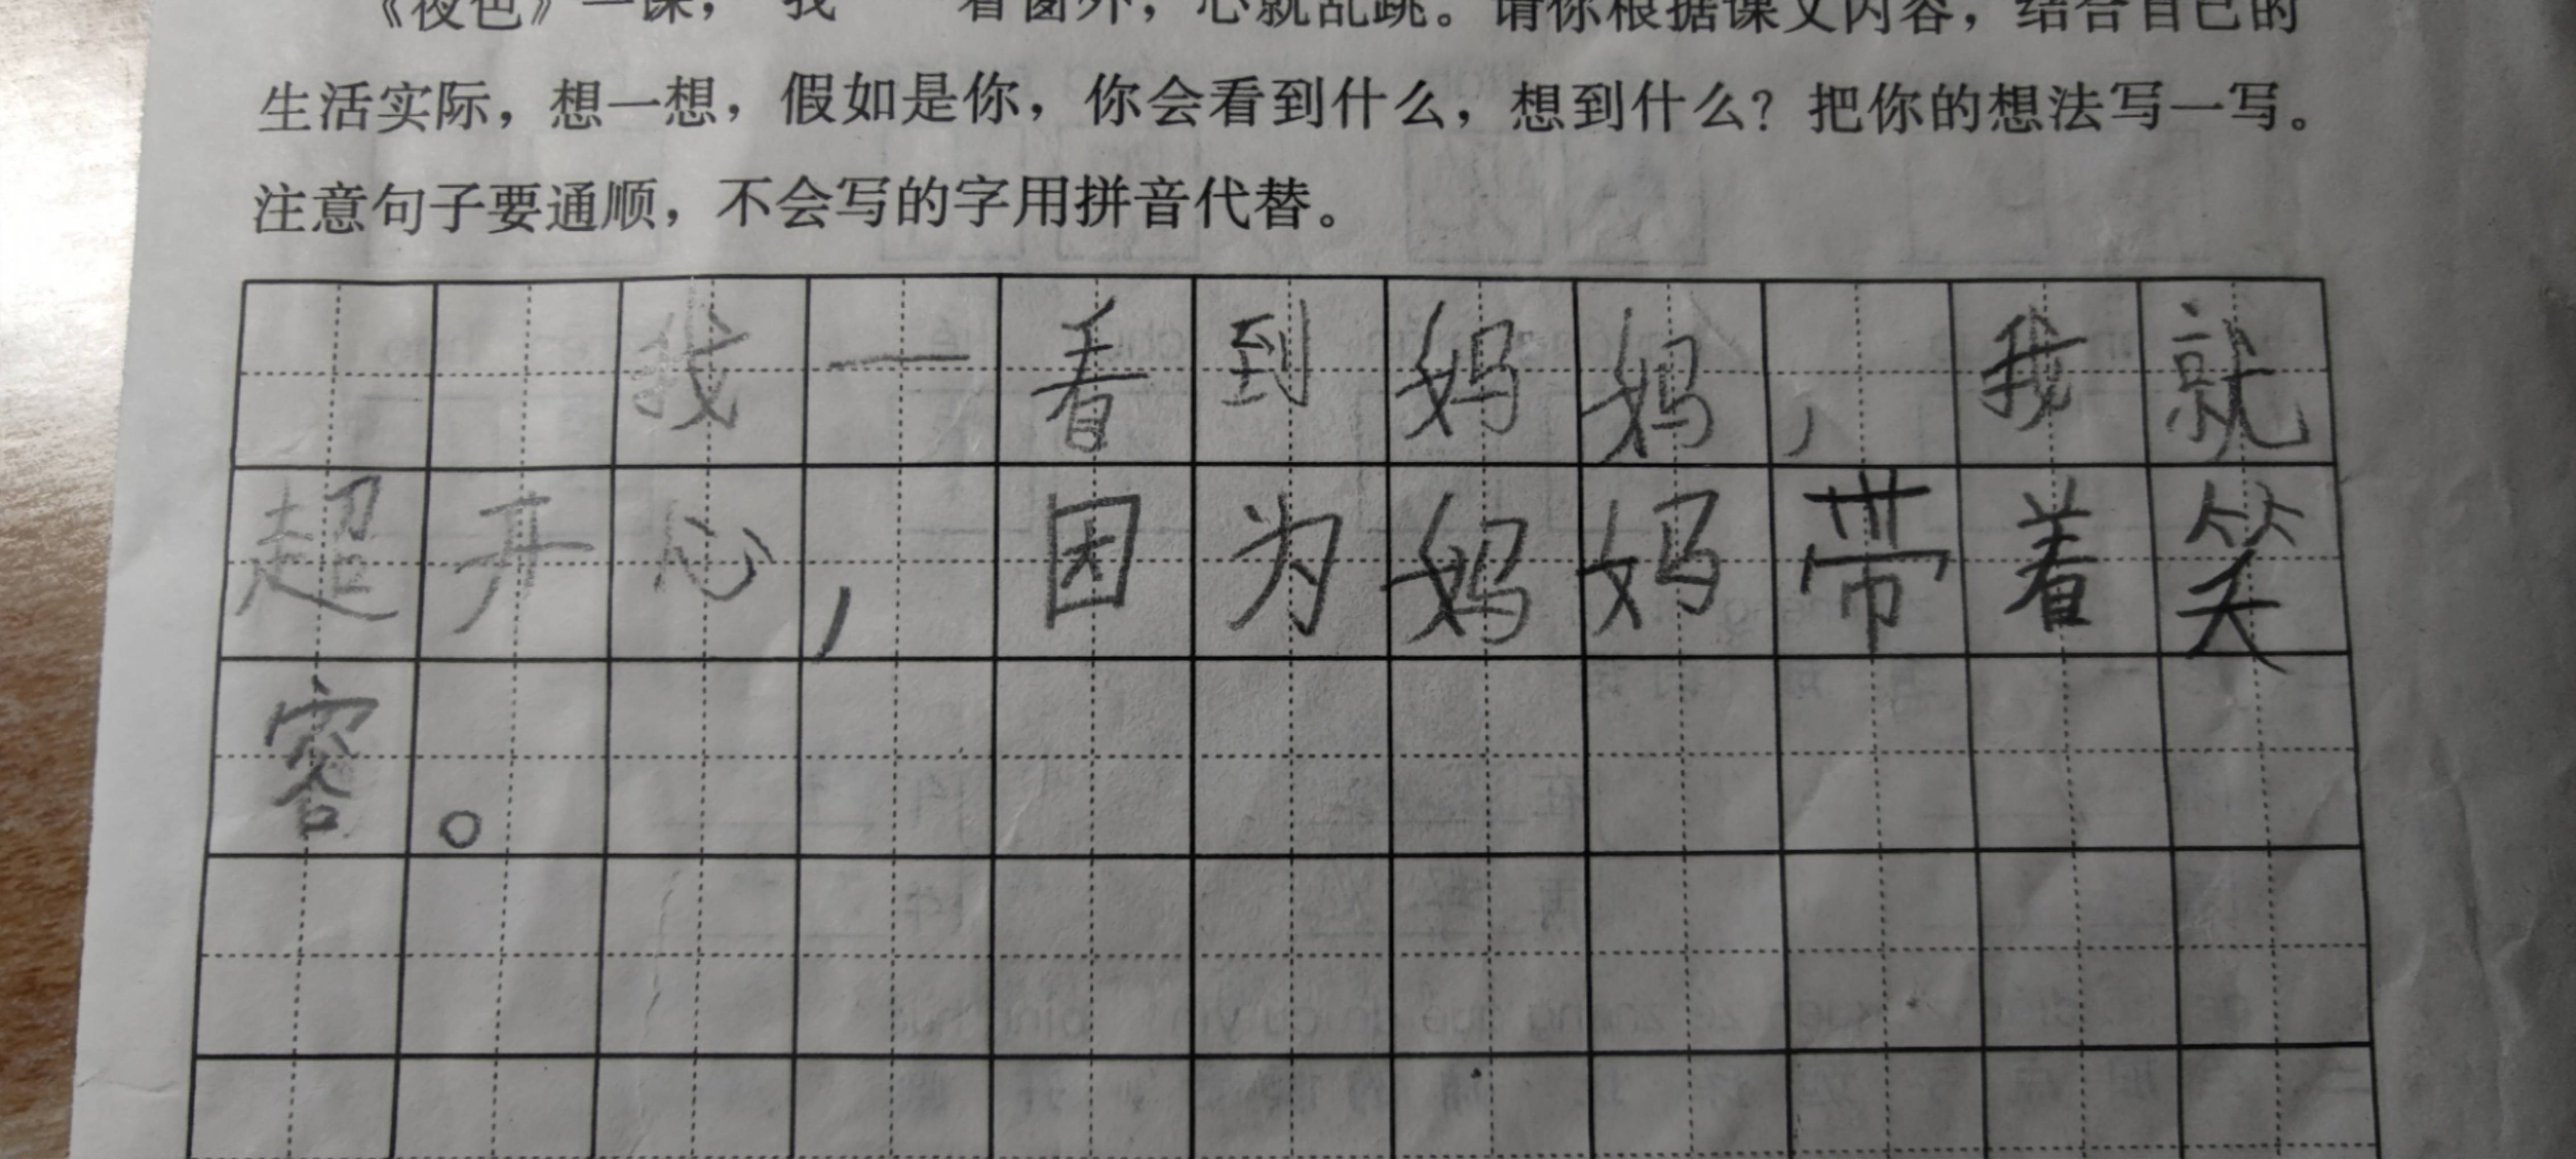 《夜色》一课，“我”一看窗外，心就乱跳。请你根据课文内容，结合自己的
生活实际，想一想，假如是你，你会看到什么，想到什么？把你的想法写一写。
注意句子要通顺，不会写的字用拼音代替。
我一看到妈妈，我就
超开心，因为妈妈带着笑
容。